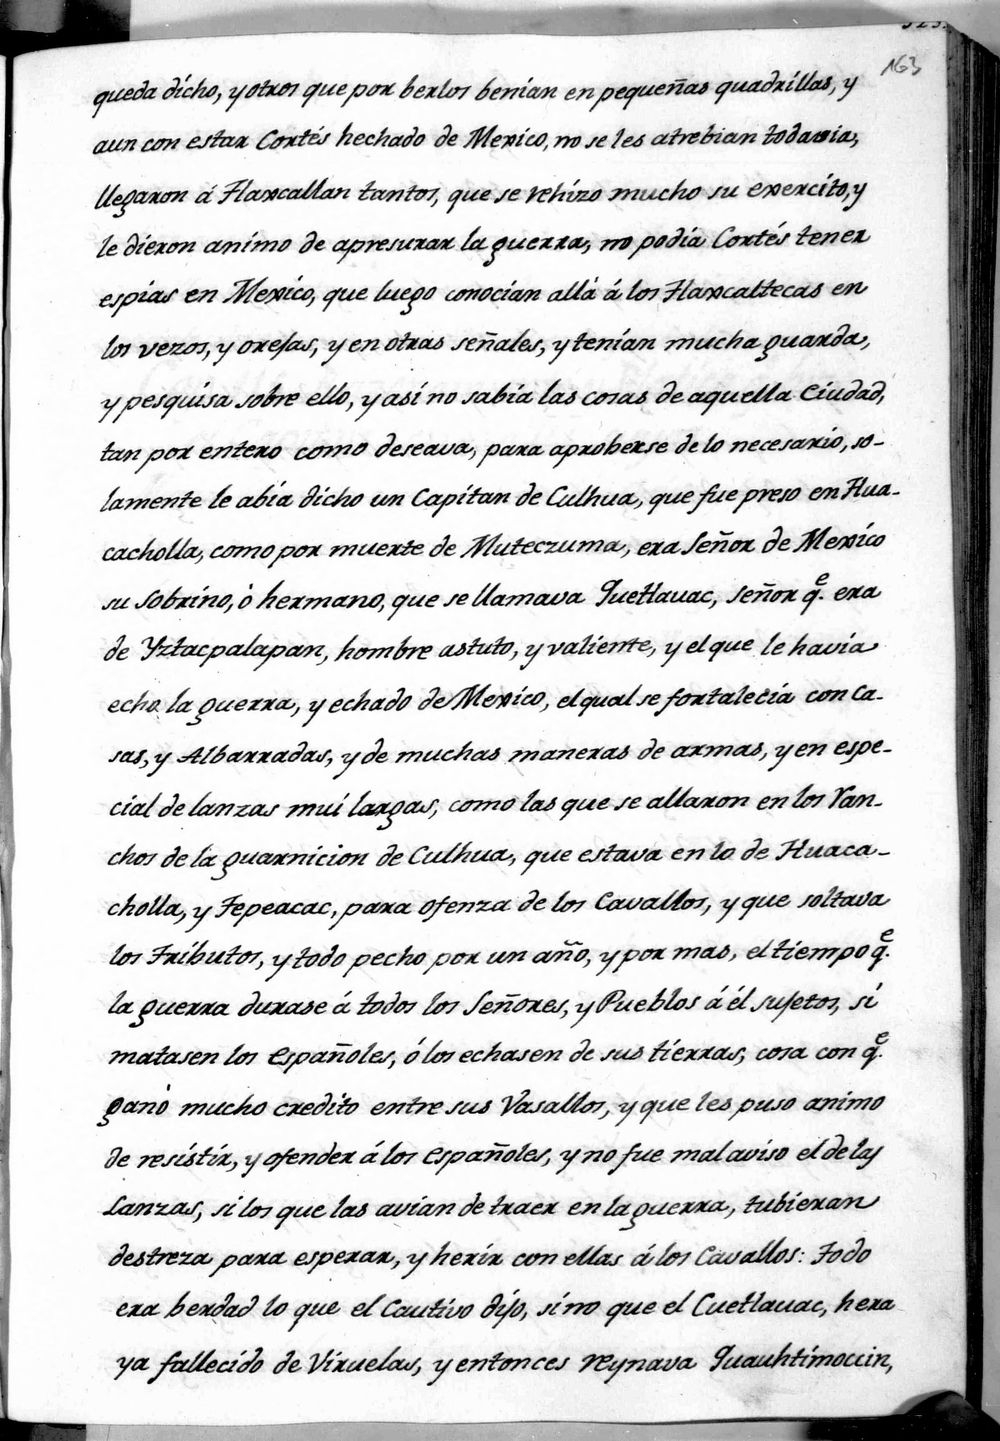 163
queda dicho, y otros que por berlos benian en pequeñas quadrillas, y
aun con estar Cortés hechado de Mexico, no se les atrebian todavia,
llegaron á Tlaxcallan tantos, que se rehizo mucho su exercito, y
le dieron animo de apresurar la guerra, no podia Cortés tener
espias en Mexico, que luego conocian allà á los Tlaxcaltecas en
los vezos, y orejas, y en otras señales, y tenian mucha guarda,
y pesquisa sobre ello, y asi no sabia las cosas de aquella Ciudad,
tan por entero como deseava, para aproberse de lo necesario, so-
lamente le abia dicho un Capitan de Culhua, que fue preso en Hua-
cacholla, como por muerte de Muteczuma, era Señor de Mexico
su sobrino, ò hermano, que se llamava Quetlauac, señor q.e era
de Yztacpalapan, hombre astuto, y valiente, y el que le havia
echo la guerra, y echado de Mexico, el qual se fortalecia con Ca-
sas, y Albarradas, y de muchas maneras de armas, y en espe-
cial de lanzas mui largas, como las que se allaron en los Ran-
chos de la guarnicion de Culhua, que estava en lo de Huaca-
cholla, y Tepeacac, para ofenza de los Cavallos, y que soltava
los Tributos, y todo pecho por un año, y por mas, el tiempo q.e
la guerra durase á todos los Señores, y Pueblos á él sujetos, si
matasen los Españoles, ó los echasen de sus tierras, cosa con q.e
ganò mucho credito entre sus Vasallos, y que les puso animo
de resistir, y ofender á los Españoles, y no fue mal aviso el de las
Lanzas, si los que las avian de traer en la guerra, tubieran
destreza para esperar, y herir con ellas á los Cavallos: Todo
era berdad lo que el Cautivo dijo, sino que el Cuetlauac, hera
ya fallecido de Viruelas, y entonces reynava Quauhtimoccin,